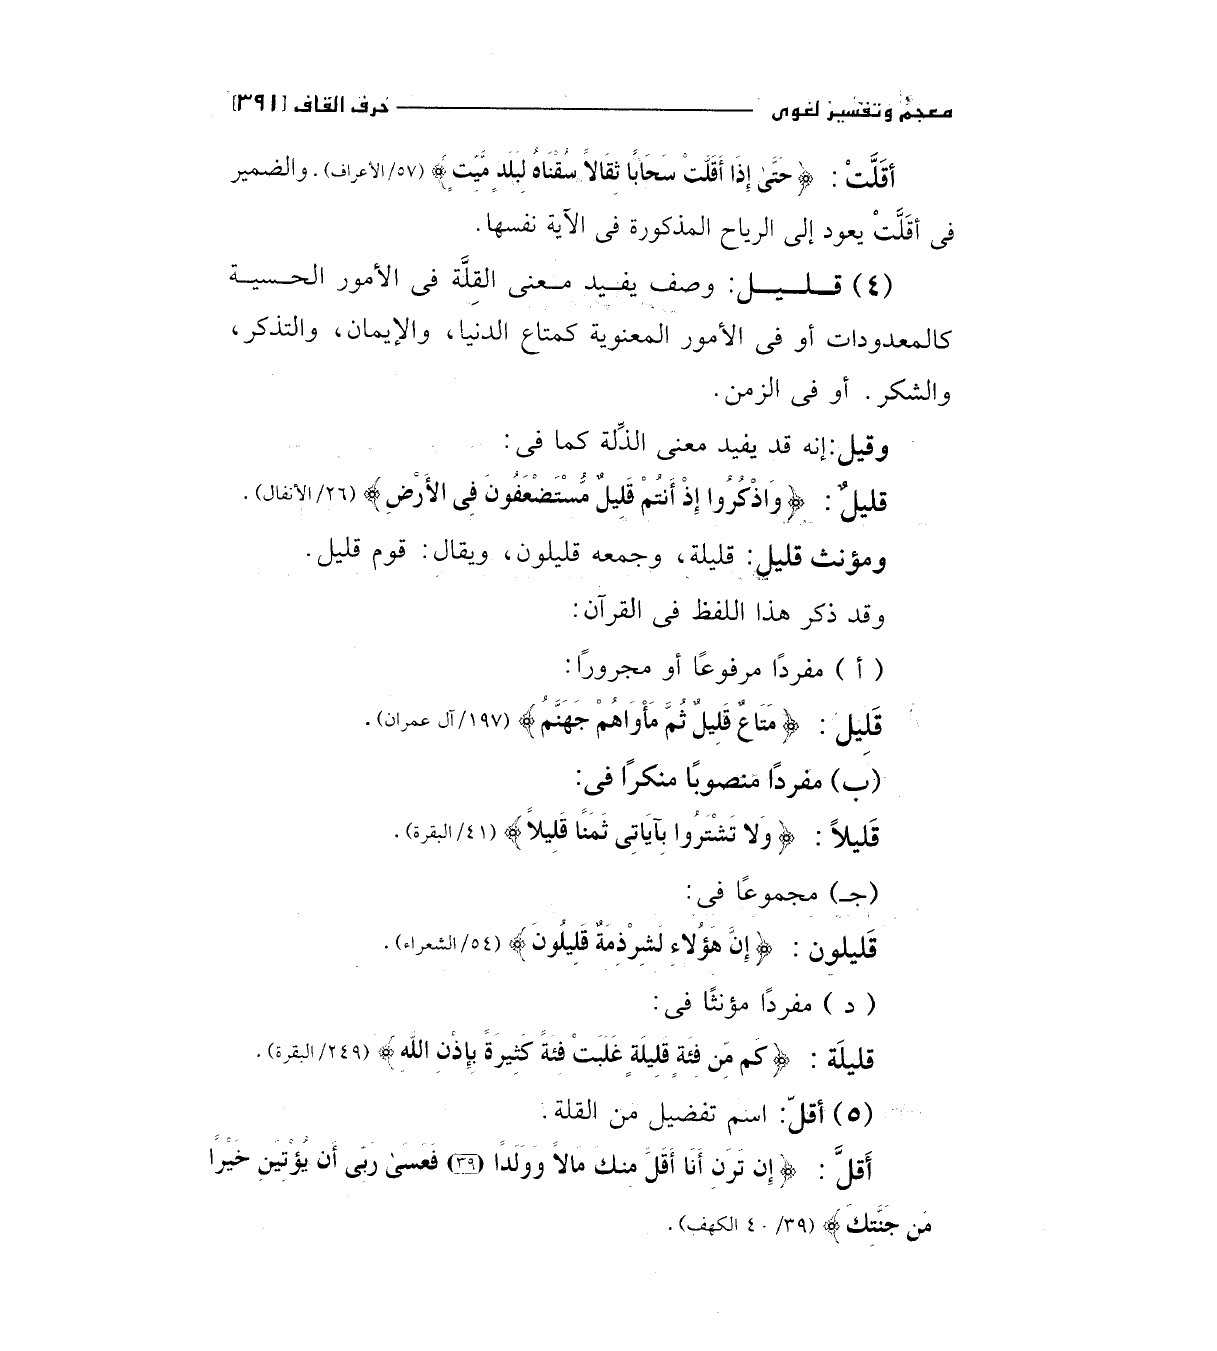 معجم وتفسير لغوى ــــــــــ حرف القاف [٣٩١]
أقَلَّتْ : ﴿حَتَّىٰ إِذَا أَقَلَّتْ سَحَابًا ثِقَالاً سُقْنَاهُ لِبَلَدٍ مَّيِّتٍ﴾ (٥٧/الأعراف). والضمير
فى أقَلَّتْ يعود إلى الرياح المذكورة فى الآية نفسها.
(٤) قليل: وصف يفيد معنى القِلَّة فى الأمور الحسية
كالمعدودات أو فى الأمور المعنوية كمتاع الدنيا، والإيمان، والتذكر،
والشكر. أو فى الزمن.
وقيل: إنه قد يفيد معنى الذِّلة كما فى:
قليلٌ : ﴿وَاذْكُرُوا إِذْ أَنتُمْ قَلِيلٌ مُّسْتَضْعَفُونَ فِى الأَرْضِ﴾ (٢٦/الأنفال).
ومؤنث قليل: قليلة، وجمعه قليلون، ويقال: قوم قليل.
وقد ذكر هذا اللفظ فى القرآن:
( أ ) مفردًا مرفوعًا أو مجرورًا:
قَلِيل : ﴿مَتَاعٌ قَلِيلٌ ثُمَّ مَأْوَاهُمْ جَهَنَّمُ﴾ (١٩٧/آل عمران).
(ب) مفردًا منصوبًا منكرًا فى:
قَلِيلاً : ﴿وَلا تَشْتَرُوا بِآيَاتِى ثَمَنًا قَلِيلاً﴾ (٤١/البقرة).
(جـ) مجموعًا فى:
قَليلون : ﴿إِنَّ هَؤُلاءِ لَشِرْذِمَةٌ قَلِيلُونَ﴾ (٥٤/الشعراء).
( د ) مفردًا مؤنثًا فى:
قليلَة : ﴿كَم مِّن فِئَةٍ قَلِيلَةٍ غَلَبَتْ فِئَةً كَثِيرَةً بِإِذْنِ اللَّهِ﴾ (٢٤٩/البقرة).
(٥) أقلّ: اسم تفضيل من القلة.
أَقلَّ : ﴿إِن تَرَنِ أَنَا أَقَلَّ مِنكَ مَالاً وَوَلَدًا (٣٩) فَعَسَىٰ رَبِّى أَن يُؤْتِيَنِ خَيْرًا
مِّن جَنَّتِكَ﴾ (٣٩/ ٤٠ الكهف).